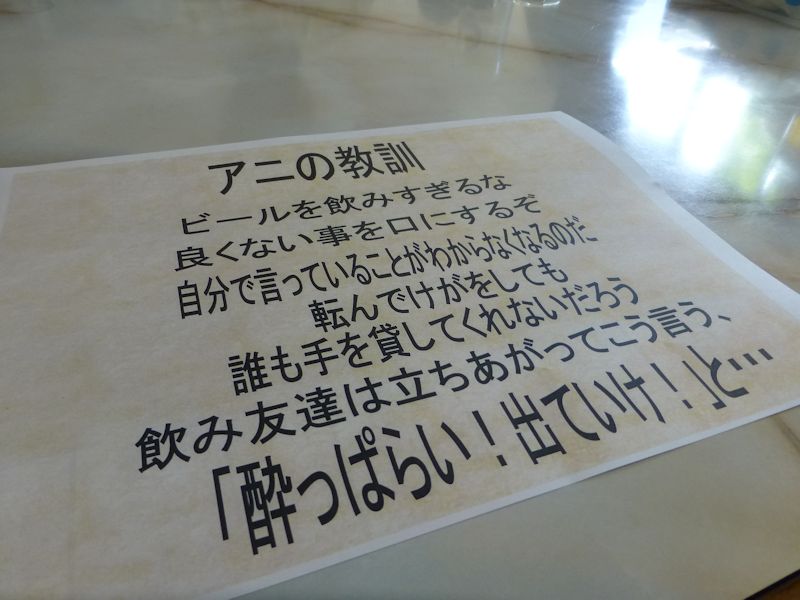 アニの教訓
ビールを飲みすぎるな
良くない事を口にするぞ
自分で言っていることがわからなくなるのだ
転んでけがをしても
誰も手を貸してくれないだろう
飲み友達は立ちあがってこう言う、
「酔っぱらい！出ていけ！」と…